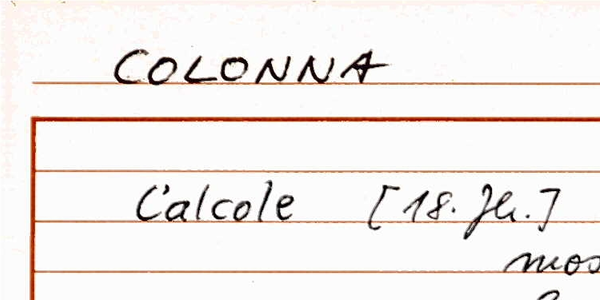 COLONNA
Calcole [18. Jh.]